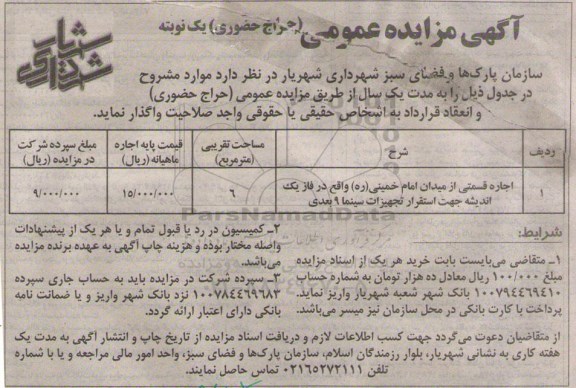 آگهی مزایده عمومی (حراج حضوری) یک نوبته
شهرداری شهریار
سازمان پارک‌ها و فضای سبز شهرداری شهریار در نظر دارد موارد مشروح
در جدول ذیل را به مدت یک سال از طریق مزایده عمومی (حراج حضوری)
و انعقاد قرارداد به اشخاص حقیقی یا حقوقی واجد صلاحیت واگذار نماید.
ردیف شرح مساحت تقریبی (مترمربع) قیمت پایه اجاره ماهیانه (ریال) مبلغ سپرده شرکت در مزایده (ریال)
۱ اجاره قسمتی از میدان امام خمینی(ره) واقع در فاز یک اندیشه جهت استقرار تجهیزات سینما ۹ بعدی ۶ ۱۵/۰۰۰/۰۰۰ ۹/۰۰۰/۰۰۰
ParsNamadData
شرایط:
۱ـ متقاضی می‌بایست بابت خرید هر یک از اسناد مزایده
مبلغ ۱۰۰/۰۰۰ ریال معادل ده هزار تومان به شماره حساب
۱۰۰۷۹۴۴۶۹۴۱۰ بانک شهر شعبه شهریار واریز نماید.
پرداخت با کارت بانکی در محل سازمان نیز میسر می‌باشد.
۲ـ کمیسیون در رد یا قبول تمام و یا هر یک از پیشنهادات
واصله مختار بوده و هزینه چاپ آگهی به عهده برنده مزایده
می‌باشد.
۳ـ سپرده شرکت در مزایده باید به حساب جاری سپرده
۱۰۰۷۸۴۴۶۹۶۸۳ نزد بانک شهر واریز و یا ضمانت نامه
بانکی دارای اعتبار ارائه گردد.
از متقاضیان دعوت می‌گردد جهت کسب اطلاعات لازم و دریافت اسناد مزایده از تاریخ چاپ و انتشار آگهی به مدت یک
هفته کاری به نشانی شهریار، بلوار رزمندگان اسلام، سازمان پارک‌ها و فضای سبز، واحد امور مالی مراجعه و یا با شماره
تلفن ۰۲۱۶۵۲۷۲۱۱۱ تماس حاصل نمایند.